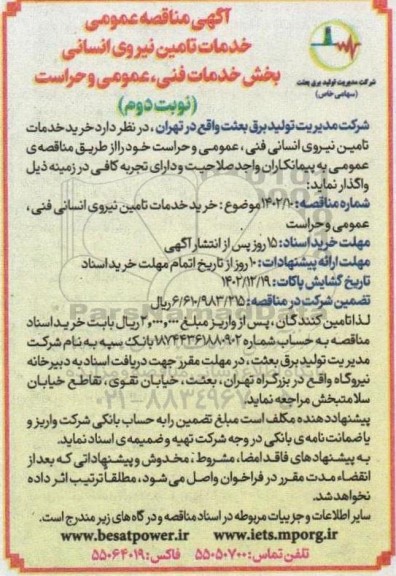 آگهی مناقصه عمومی
خدمات تامین نیروی انسانی
بخش خدمات فنی، عمومی و حراست
(نوبت دوم)
شرکت مدیریت تولید برق بعثت
(سهامی خاص)
شرکت مدیریت تولید برق بعثت واقع در تهران، در نظر دارد خرید خدمات
تامین نیروی انسانی فنی، عمومی و حراست خود را از طریق مناقصه ی
عمومی به پیمانکاران واجد صلاحیت و دارای تجربه کافی در زمینه ذیل
واگذار نماید:
شماره مناقصه: ۱۴۰۲/۱۰ موضوع: خرید خدمات تامین نیروی انسانی فنی،
عمومی و حراست
مهلت خرید اسناد: ۱۵ روز پس از انتشار آگهی
مهلت ارائه پیشنهادات: ۱۰ روز از تاریخ اتمام مهلت خرید اسناد
تاریخ گشایش پاکات: ۱۴۰۲/۱۲/۱۹
تضمین شرکت در مناقصه: ۶/۶۱۰/۹۸۳/۲۱۵ ریال
لذا تامین کنندگان، پس از واریز مبلغ ۲,۰۰۰,۰۰۰ ریال بابت خرید اسناد
مناقصه به حساب شماره ۱۸۷۴۴۳۶۱۸۸۰۹۰۲ بانک سپه به نام شرکت
مدیریت تولید برق بعثت، در مهلت مقرر جهت دریافت اسناد به دبیرخانه
نیروگاه واقع در بزرگراه تهران، بعثت، خیابان تقوی، تقاطع خیابان
سلامتبخش مراجعه نماید.
پیشنهاد دهنده مکلف است مبلغ تضمین را به حساب بانکی شرکت واریز و
یا ضمانت نامه ی بانکی در وجه شرکت تهیه و ضمیمه ی اسناد نماید.
به پیشنهاد های فاقد امضاء، مشروط، مخدوش و پیشنهاداتی که بعد از
انقضاء مدت مقرر در فراخوان واصل می شود، مطلقاً ترتیب اثر داده
نخواهد شد.
سایر اطلاعات و جزییات مربوطه در اسناد مناقصه و درگاه های زیر مندرج است.
www.besatpower.ir www.iets.mporg.ir
تلفن تماس: ۵۵۰۵۰۷۰۰ فاکس: ۵۵۰۶۴۰۱۹
ParsNamadData
۰۲۱-۸۸۳۴۹۶۷۰